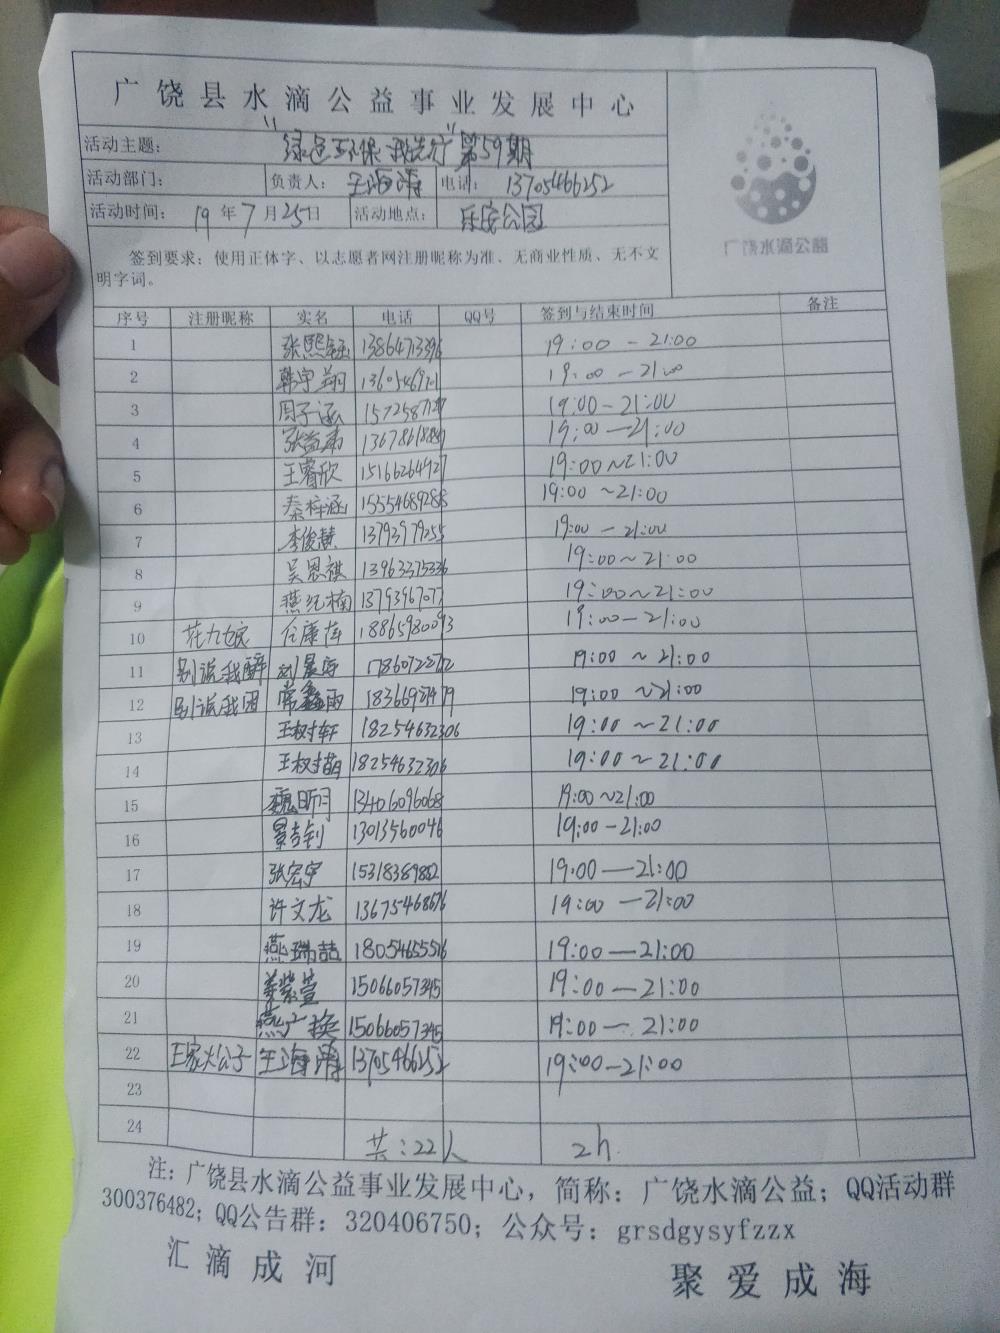 广饶县水滴公益事业发展中心
活动主题： "绿色环保 我先行" 第59期
活动部门： 负责人： 王海涛 电话： 13705466252
活动时间： 19年7月25日 活动地点： 乐安公园
广饶水滴公益
签到要求：使用正体字、以志愿者网注册昵称为准、无商业性质、无不文
明字词。
序号 注册昵称 实名 电话 QQ号 签到与结束时间 备注
1 张熙钰 19:00 - 21:00
2 韩宇翔 19:00 - 21:00
3 周子涵 19:00 - 21:00
4 张益 19:00 - 21:00
5 王睿欣 15166264927 19:00~21:00
6 秦梓涵 15554689288 19:00 ~21:00
7 李俊慧 13793979255 19:00 - 21:00
8 吴恩祺 13963375336 19:00~21:00
9 燕纪楠 19:00~21:00
10 花九娘 任康 18865980093 19:00-21:00
11 别说我醉 刘 19:00 ~ 21:00
12 别说我困 常鑫雨 19:00 ~21:00
13 王树轩 18254632306 19:00 ~ 21:00
14 王树萌 18254632306 19:00 ~ 21:00
15 魏昕 13406096068 19:00~21:00
16 景 13013560046 19:00-21:00
17 张宏宇 19:00 — 21:00
18 许文龙 13675468676 19:00 — 21:00
19 燕瑞喆 18054655516 19:00 — 21:00
20 姜紫萱 15066057345 19:00 — 21:00
21 燕广换 15066057345 19:00 — 21:00
22 王家大公子 王海涛 13705466252 19:00-21:00
23
24 共：22人 2h
注：广饶县水滴公益事业发展中心，简称：广饶水滴公益；QQ活动群
300376482；QQ公告群：320406750；公众号：grsdgysyfzzx
汇滴成河 聚爱成海